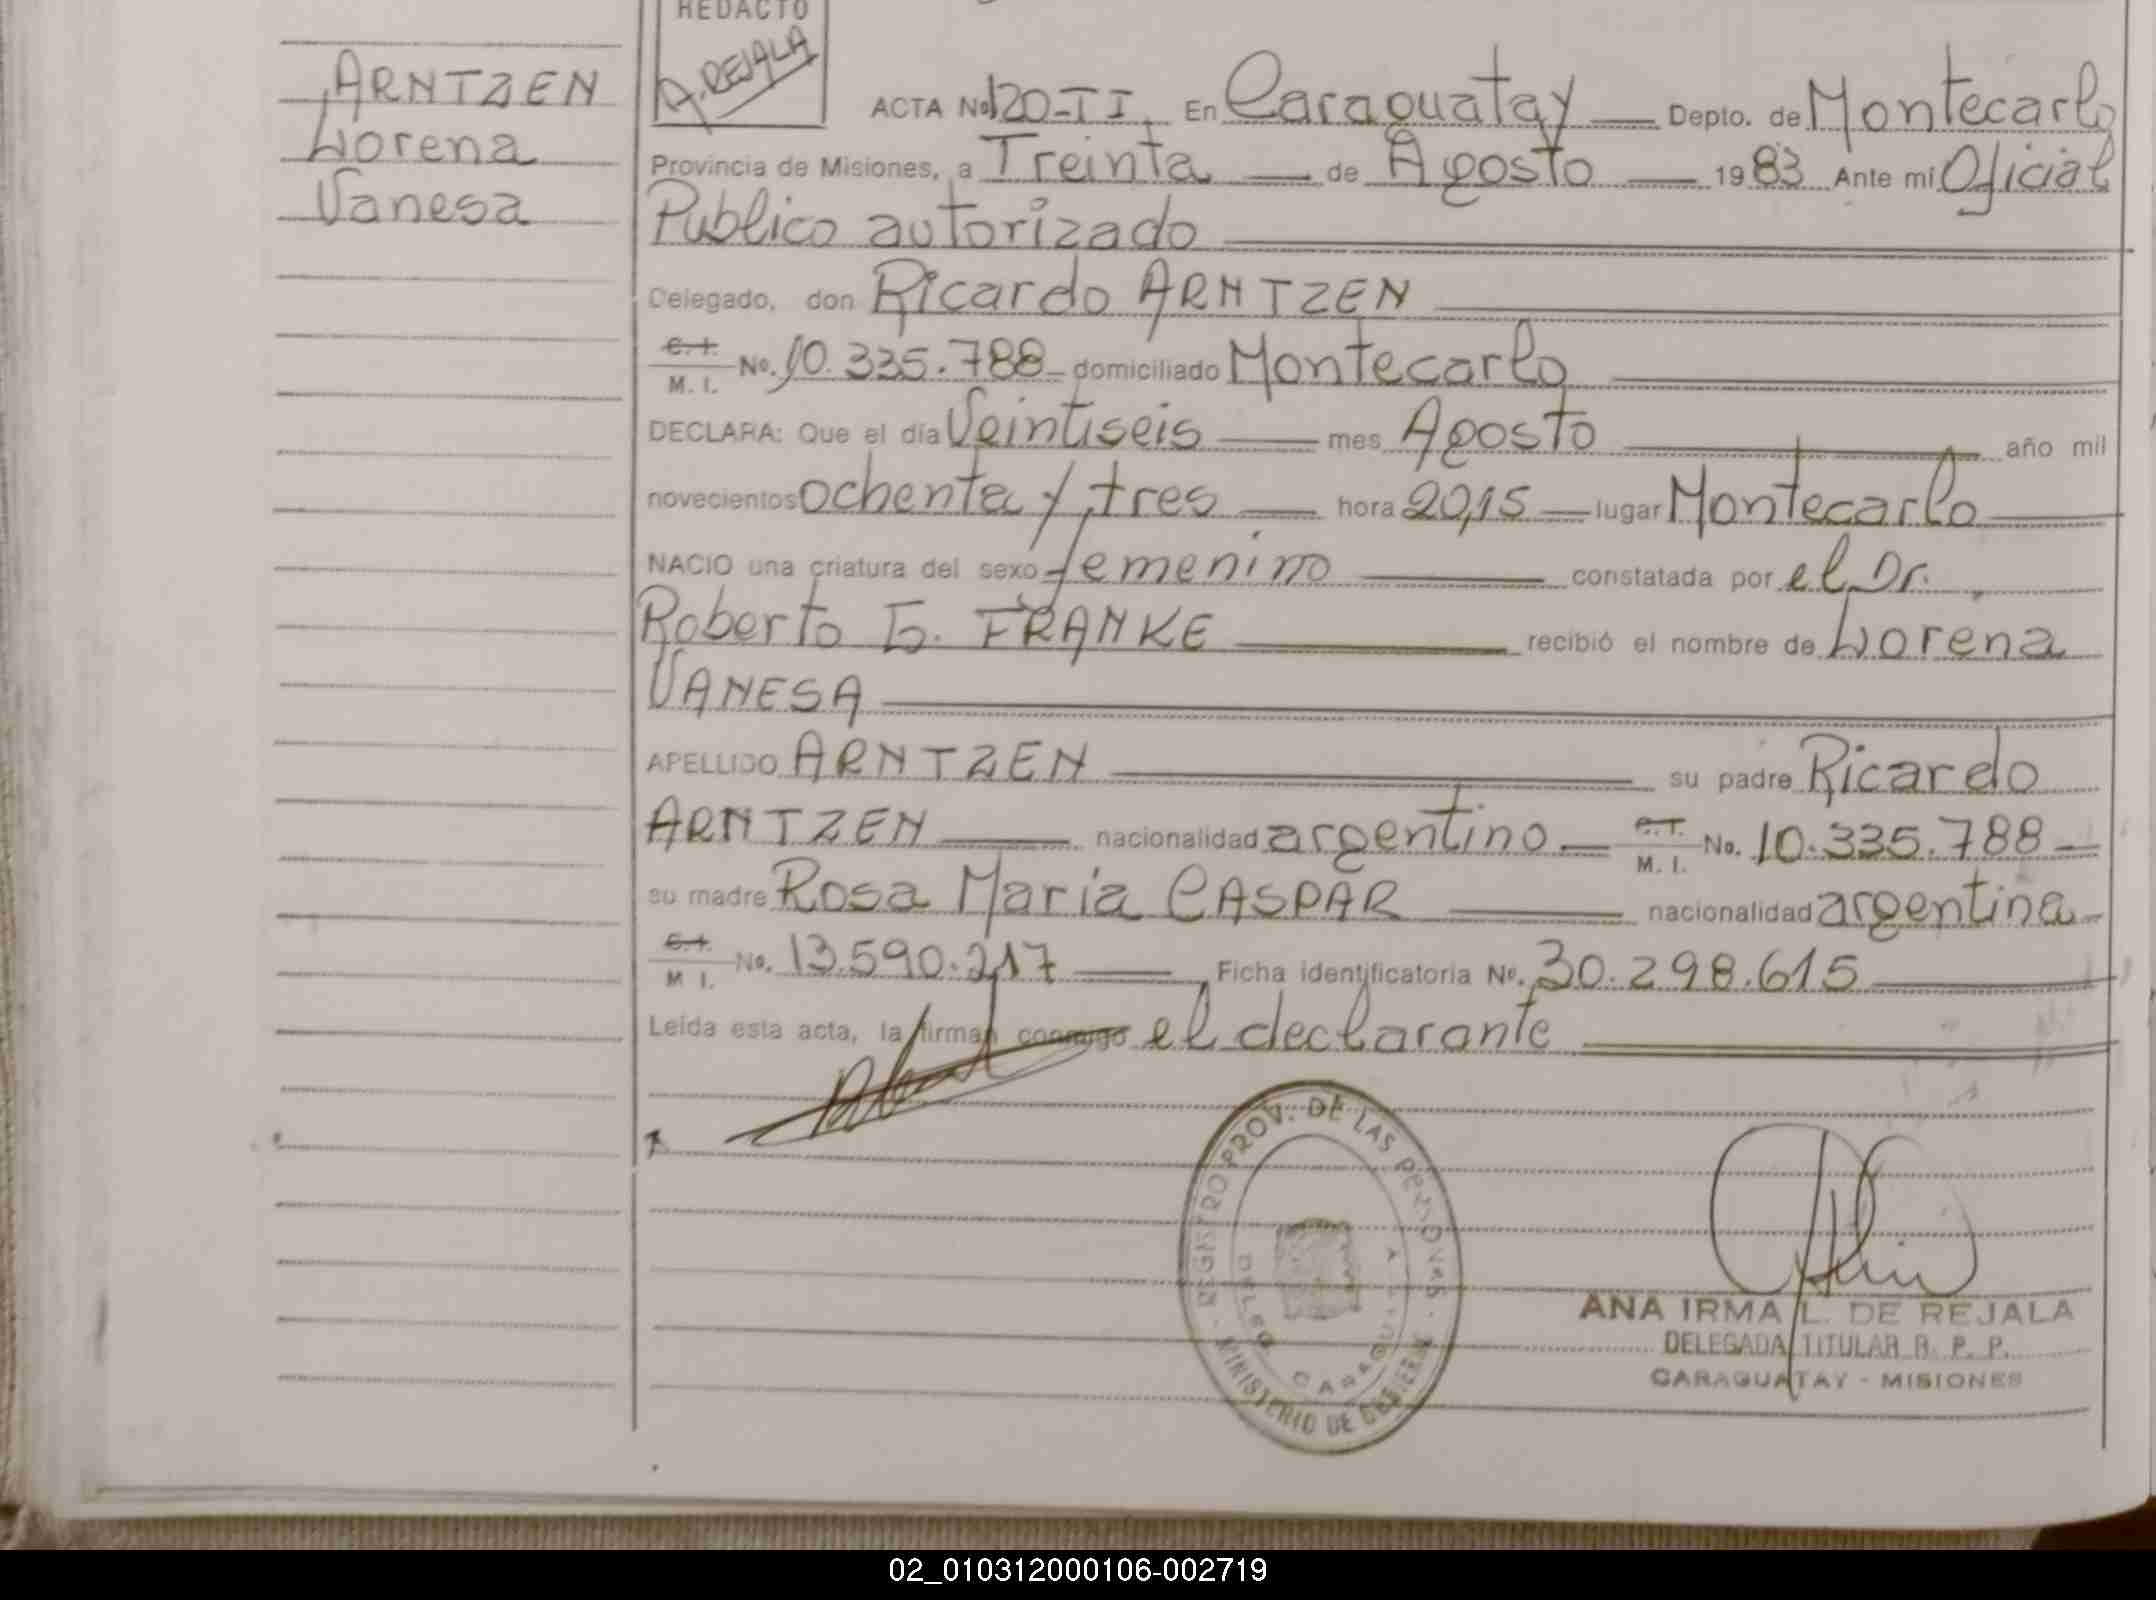 REDACTO
A. REJALA
ARNTZEN
Lorena
Vanesa
ACTA Nº 120-II. En Caraguatay Depto. de Montecarlo
Provincia de Misiones, a Treinta de Agosto 1983 Ante mi Oficial
Publico autorizado
Delegado, don Ricardo ARNTZEN
C.I. M. I. Nº. 10.335.788 domiciliado Montecarlo
DECLARA: Que el día Veintiseis mes Agosto año mil
novecientos ochenta y tres hora 20,15 lugar Montecarlo
NACIO una criatura del sexo femenino constatada por el Dr.
Roberto G. FRANKE recibió el nombre de Lorena
VANESA
APELLIDO ARNTZEN su padre Ricardo
ARNTZEN nacionalidad argentino C.I. M. I. Nº. 10.335.788
su madre Rosa Maria CASPAR nacionalidad argentina
C.I. M I. Nº. 13.590.217 Ficha identificatoria Nº. 30.298.615
Leída esta acta, la firman conmigo el declarante
REGISTRO PROV. DE LAS PERSONAS
MINISTERIO DE GOBIERNO
DELEG
CARAGUATAY
ANA IRMA L. DE REJALA
DELEGADA TITULAR R. P. P.
CARAGUATAY - MISIONES
02_010312000106-002719